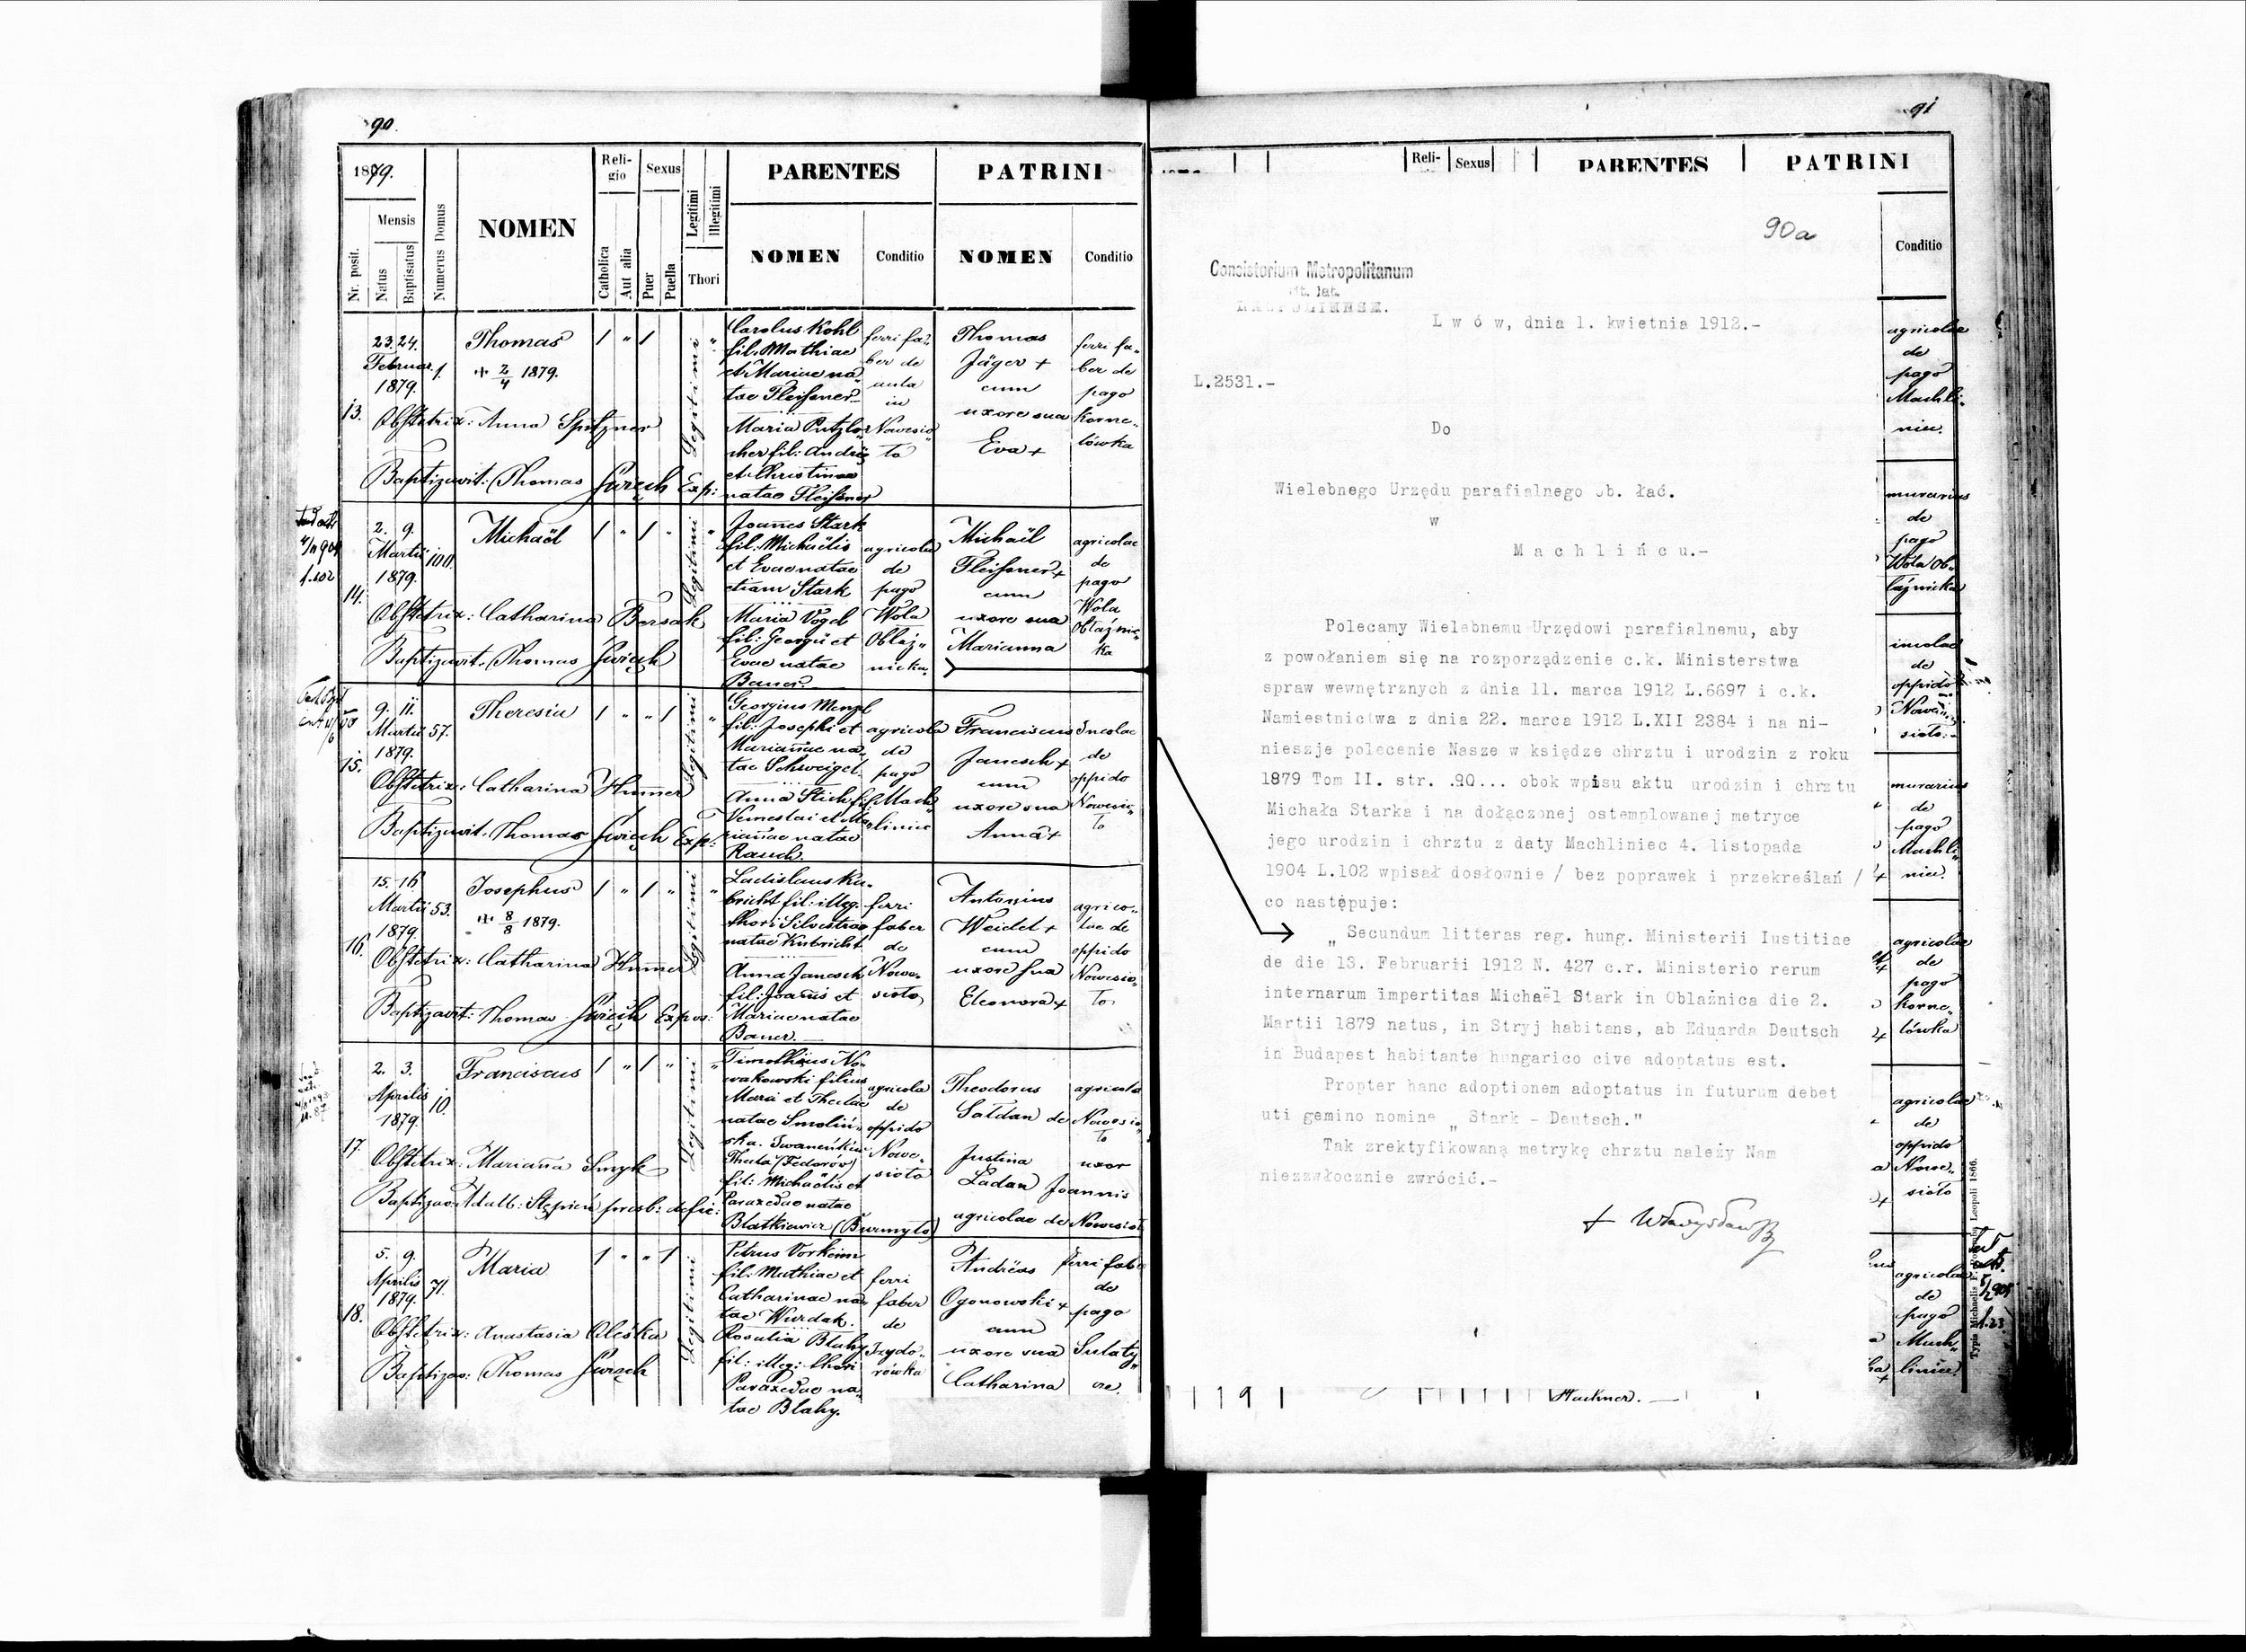 90.
1879.
Nr. posit.
Mensis
Natus
Baptisatus
Numerus Domus
NOMEN
Reli-
gio
Catholica
Aut alia
Sexus
Puer
Puella
Legitimi
Illegitimi
Thori
PARENTES
NOMEN
Conditio
PATRINI
NOMEN
Conditio
13.
23. 24.
Februar.
1879.
1.
Thomas
2/4 1879.
Legitimi
Carolus Kohl
fil. Mathiae
et Mariae na
tae Fleißner
Maria Putzlo
cher fil: Andreae
et Christinae
natae Fleißner
ferri fa
ber de
aula
in
Nowesio
to
Thomas
Jäger +
cum
uxore sua
Eva +
ferri fa
ber de
pago
Korne
lówka
Obstetrix: Anna Spitzner
Baptizavit: Thomas Świąch Exp:
14.
2. 9.
Martii
1879.
100.
Michaël
Legitimi
Joannes Stark
fil. Michaëlis
et Evae natae
etiam Stark
Maria Vogel
fil: Georgii et
Evae natae
Bauer.
agricola
de
pago
Wola
Obłaź
nicka
Michaël
Fleißner +
cum
uxore sua
Marianna
agricolae
de
pago
Wola
Obłaźnic
ka
Obstetrix: Catharina Bersak
Baptizavit: Thomas Świąch
15.
9. 11.
Martii
1879.
57.
Theresia
Legitimi
Georgius Menzl
fil: Josephi et
Mariannae na
tae Schweigel.
Anna Stich fil:
Venceslai et Ma
riannae natae
Rauch.
agricola
de
pago
Mach
liniec
Franciscus
Janesch +
cum
uxore sua
Anna +
Incolae
de
oppido
Nowesio
to
Obstetrix: Catharina Hummer
Baptizavit: Thomas Świąch Exp:
16.
15. 16.
Martii
1879.
53.
Josephus
8/8 1879.
Legitimi
Ladislaus Ku
bricht fil: illeg.
thori Silvestrae
natae Kubricht
Anna Janesch
fil: Joannis et
Mariae natae
Bauer.
ferri
faber
de
Nowe
sioto
Antonius
Weidel +
cum
uxore sua
Eleonora +
agrico
lae de
oppido
Nowesio
to
Obstetrix: Catharina Hummer
Baptizavit: Thomas Świąch Expos:
17.
2. 3.
Aprilis
1879.
10.
Franciscus
Legitimi
Timotheus No
wakowski filius
natae Smoliń
ska.
Thecla (Fedorów)
fil: Michaëlis et
Paraxedae natae
Blatkiewicz (Burmyło)
agricola
de
oppido
Nowe
sioto
Theodorus
Sałdan de
Justina
Ładan Joannis
agricolae de Nowesioto
agricola
Nowosio
to
uxor
Obstetrix: Marianna Smyk
Baptizav: Adalb: Stępień presb: defic:
18.
5. 9.
Aprilis
1879.
71.
Maria
Legitimi
Petrus Vorkeim
fil: Mathiae et
Catharinae na
tae Wurdak.
Rosalia Blahy
fil: illeg: thori
Paraxedae na
tae Blahy.
ferri
faber
de
Izydo
rówka
Andreas
Ogonowski +
cum
uxore sua
Catharina
ferri faber
de
pago
Sulaty
cze.
Obstetrix: Anastasia Oleśka
Baptizav: Thomas Świąch
91
Reli-
Sexus
PARENTES
PATRINI
Conditio
90a
Consistorium Metropolitanum
rit. lat.
LEOPOLIENSE.
Lwów, dnia 1. kwietnia 1912.-
L.2531.-
Do
Wielebnego Urzędu parafialnego ob. łać.
w
Machlińcu.-
Polecamy Wielebnemu Urzędowi parafialnemu, aby
z powołaniem się na rozporządzenie c.k. Ministerstwa
spraw wewnętrznych z dnia 11. marca 1912 L.6697 i c.k.
Namiestnictwa z dnia 22. marca 1912 L.XII 2384 i na ni-
nieszje polecenie Nasze w księdze chrztu i urodzin z roku
1879 Tom II. str. .90... obok wpisu aktu urodzin i chrztu
Michała Starka i na dołączonej ostemplowanej metryce
jego urodzin i chrztu z daty Machliniec 4. listopada
1904 L.102 wpisał dosłownie / bez poprawek i przekreślań /
co następuje:
„ Secundum litteras reg. hung. Ministerii Iustitiae
de die 13. Februarii 1912 N. 427 c.r. Ministerio rerum
internarum impertitas Michaël Stark in Oblaźnica die 2.
Martii 1879 natus, in Stryj habitans, ab Eduarda Deutsch
in Budapest habitante hungarico cive adoptatus est.
Propter hanc adoptionem adoptatus in futurum debet
uti gemino nomine „ Stark - Deutsch."
Tak zrektyfikowaną metrykę chrztu należy Nam
niezzwłocznie zwrócić.-
+ Władysław
agricolae
de
pago
Machli
niec.
murarius
de
pago
Wola Ob
łaźnicka
incolae
de
oppido
Nowe
sioto.
murarius
de
pago
Machli
niec.
agricolae
de
pago
Korne
lówka
agricolae
de
oppido
Nowe
sioto
agricolae
de
pago
Mach
liniec
19
Hackner.
Leopoli 1866.